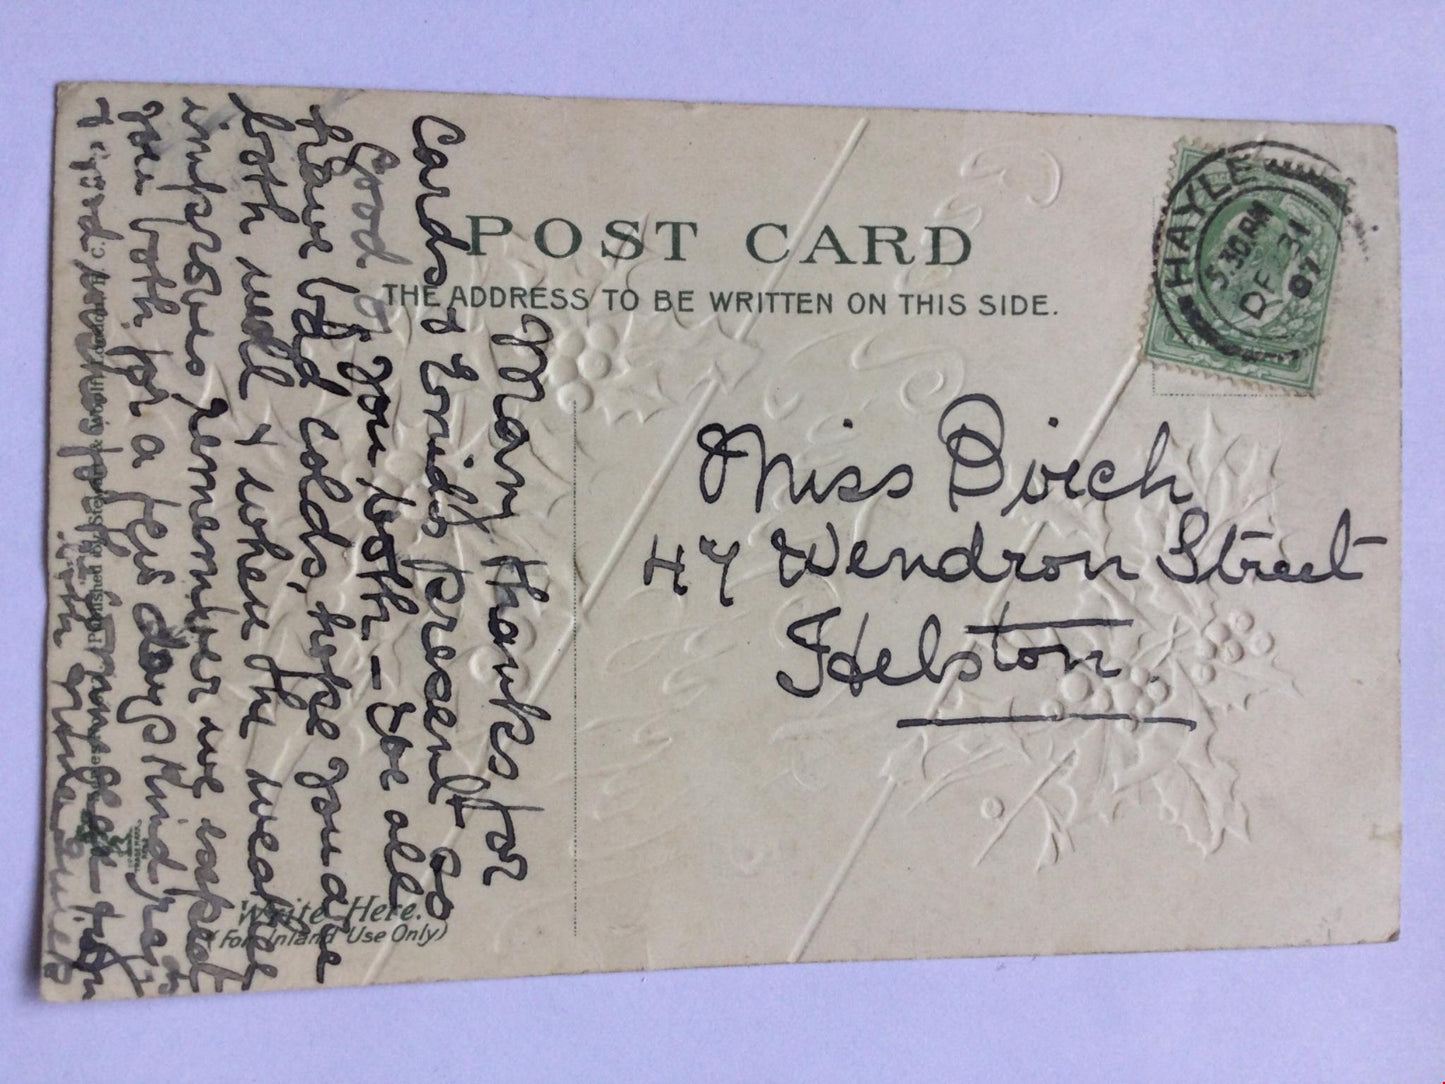 POST CARD
THE ADDRESS TO BE WRITTEN ON THIS SIDE.
HAYLE
5.30 PM
DE 31
07
Miss Birch
47 Wendron Street
Helston.
Many thanks for
Cards & Enid's present so
Good of you both - We all
have bad colds, hope you are
both well & when the weather
improves remember we expect
you both for a few days Kind
With
Write Here.
(For Inland Use Only)
Published by